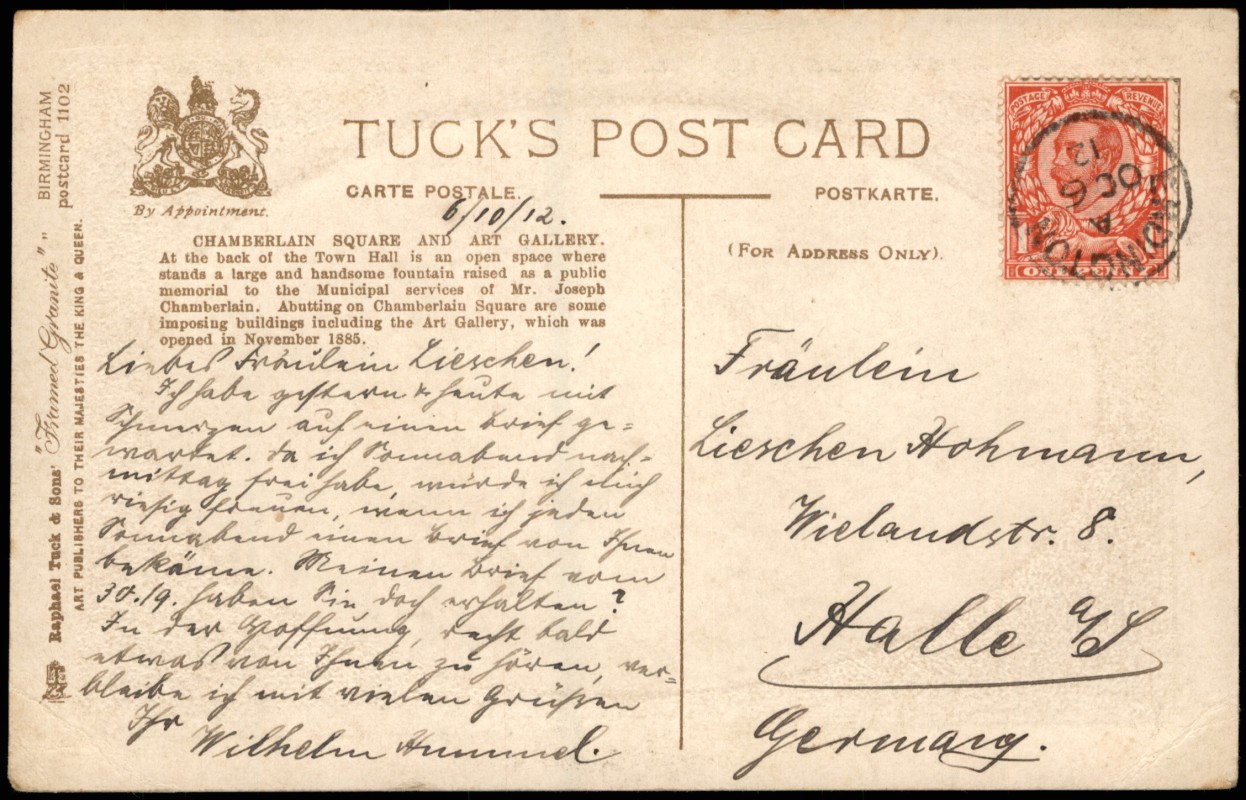 BIRMINGHAM
postcard 1102
"Framed Granite" "
Raphael Tuck & Sons'
ART PUBLISHERS TO THEIR MAJESTIES THE KING & QUEEN.
By Appointment.
TUCK'S POST CARD
CARTE POSTALE.
POSTKARTE.
6/10/12.
(FOR ADDRESS ONLY).
CHAMBERLAIN SQUARE AND ART GALLERY.
At the back of the Town Hall is an open space where
stands a large and handsome fountain raised as a public
memorial to the Municipal services of Mr. Joseph
Chamberlain. Abutting on Chamberlain Square are some
imposing buildings including the Art Gallery, which was
opened in November 1885.
Liebes Fräulein Lieschen!
Ich habe gestern & heute mit
Schmerzen auf einen Brief ge=
wartet. Da ich Sonnabend nach=
mittag frei habe, würde ich mich
riesig freuen, wenn ich jeden
Sonnabend einen Brief von Ihnen
bekäme. Meinen Brief vom
30./9. haben Sie doch erhalten?
In der Hoffnung, recht bald
etwas von Ihnen zu hören, ver=
bleibe ich mit vielen Grüßen
Ihr
Wilhelm Hummel.
POSTAGE REVENUE
ONE PENNY
ERDINGTON
A
OC 6
12
Fräulein
Lieschen Hohmann,
Wielandstr. 8.
Halle a/S
Germany.